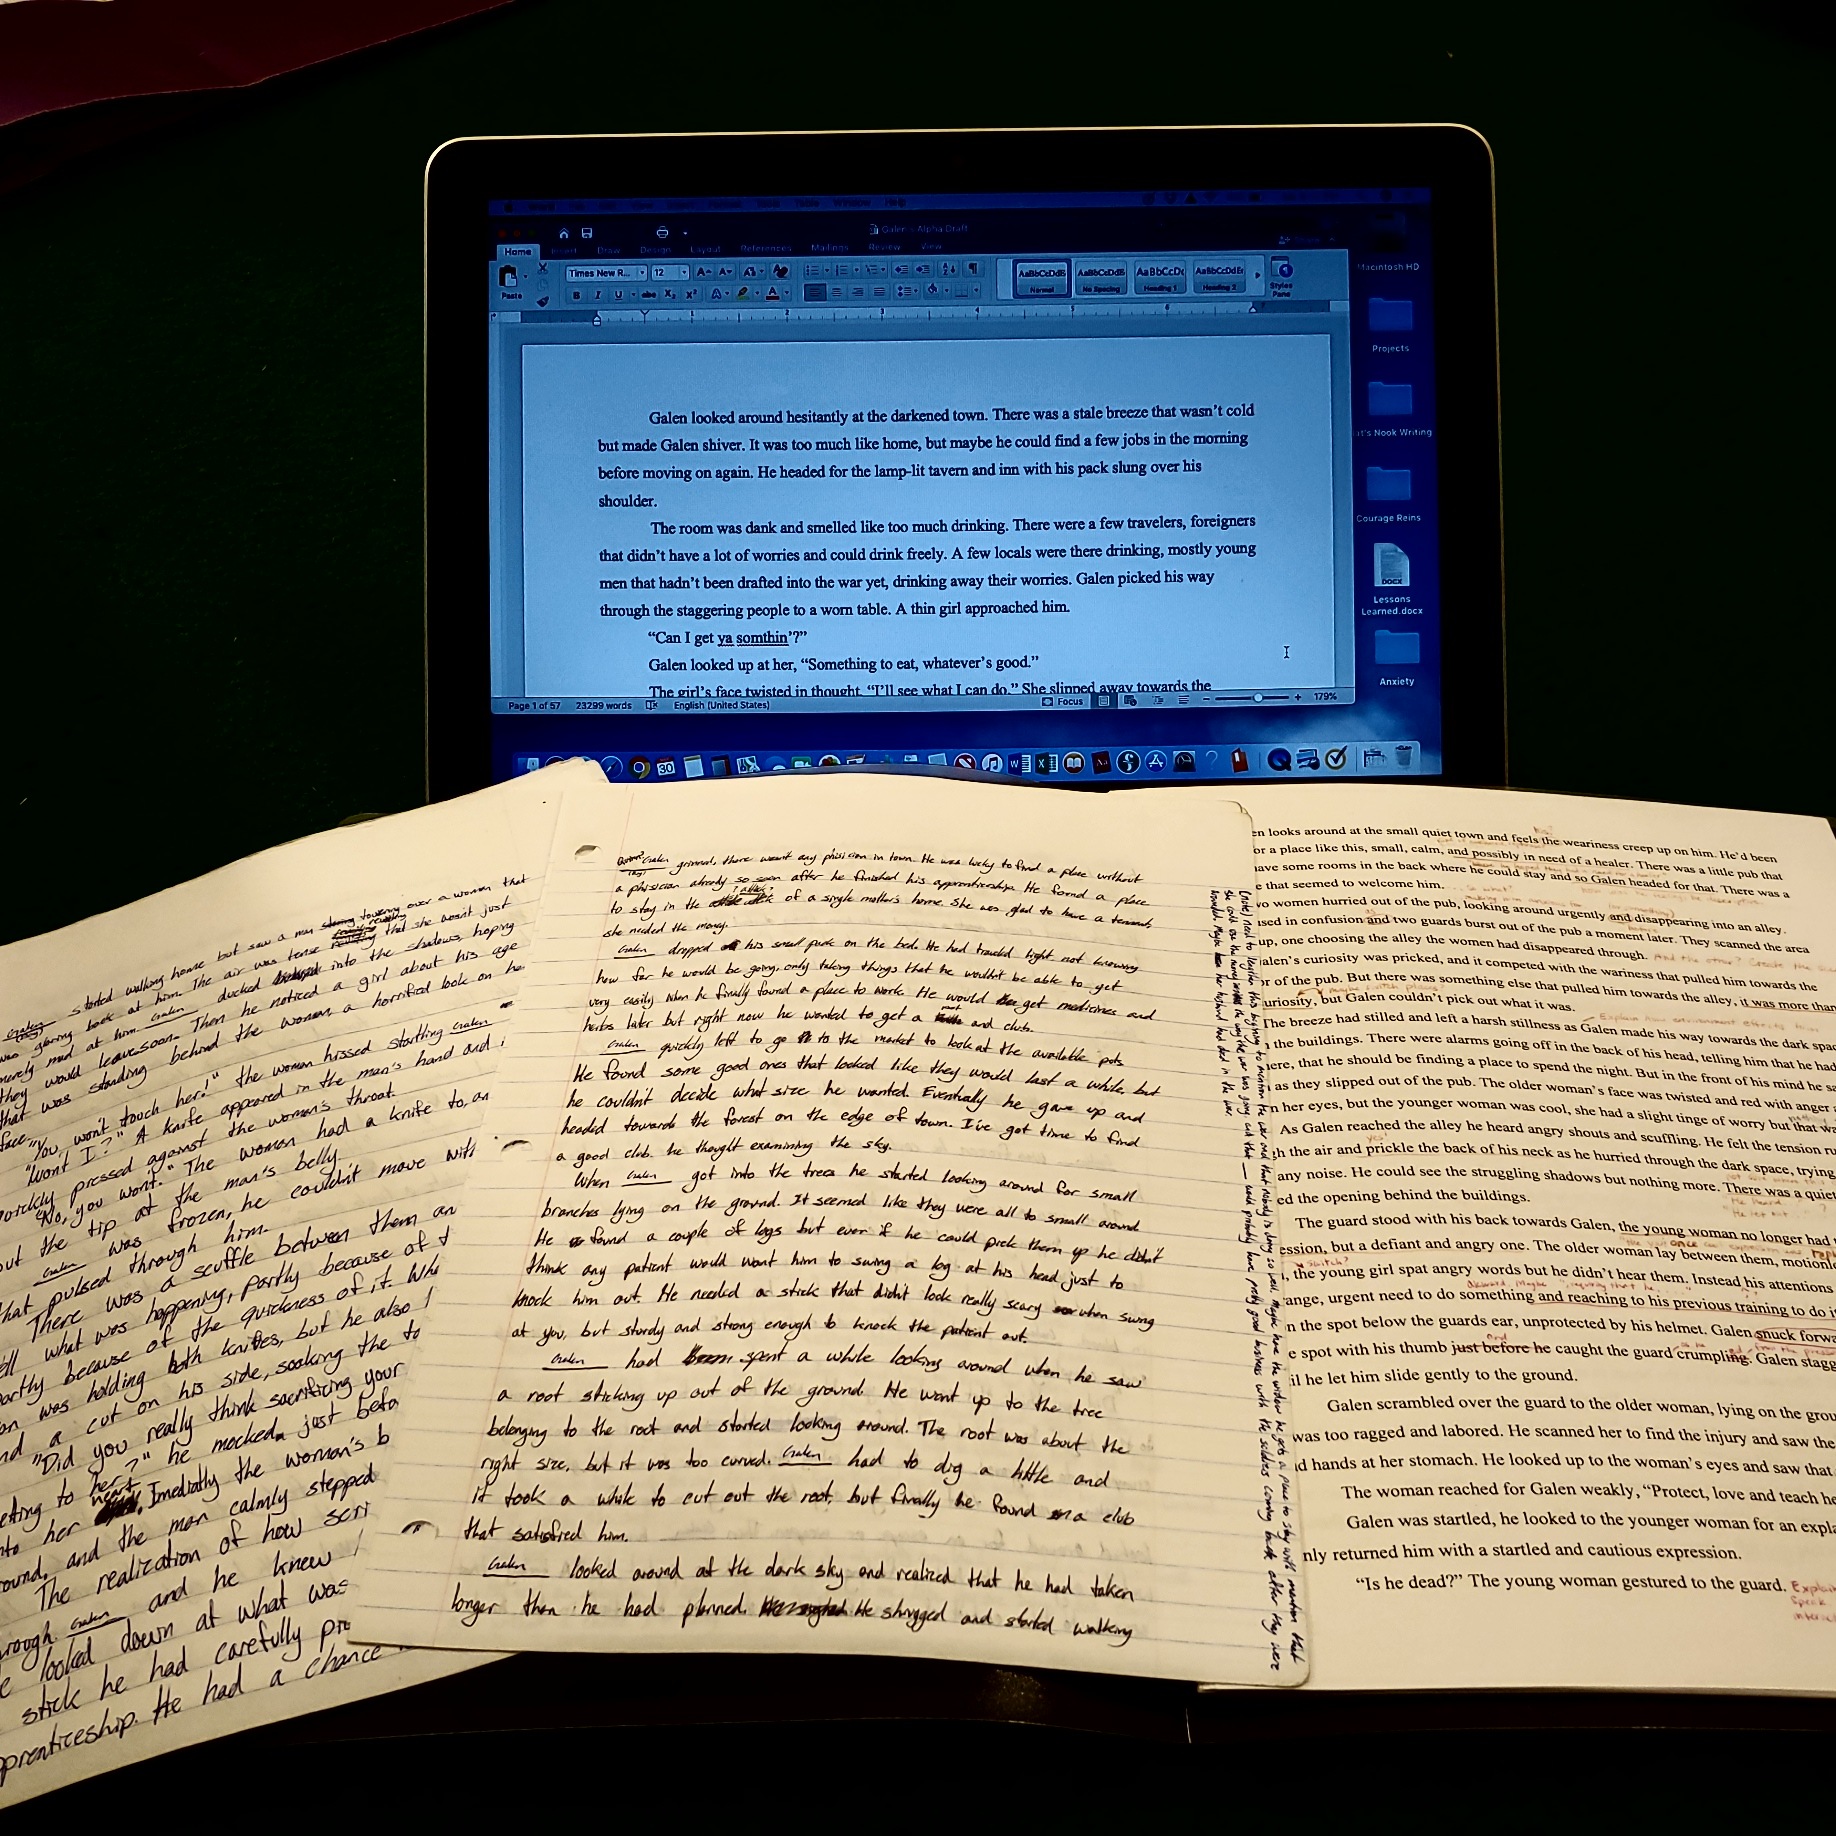 Window Help
Galen's Alpha Draft
Home Insert Draw Design Layout References Mailings Review View
Paste
Times New R... 12
B I U abc X₂ X²
AaBbCcDdE AaBbCcDdE AaBbCcDc AaBbCcDdEe
Normal No Spacing Heading 1 Heading 2
Styles Pane
Galen looked around hesitantly at the darkened town. There was a stale breeze that wasn't cold
but made Galen shiver. It was too much like home, but maybe he could find a few jobs in the morning
before moving on again. He headed for the lamp-lit tavern and inn with his pack slung over his
shoulder.
The room was dank and smelled like too much drinking. There were a few travelers, foreigners
that didn't have a lot of worries and could drink freely. A few locals were there drinking, mostly young
men that hadn't been drafted into the war yet, drinking away their worries. Galen picked his way
through the staggering people to a worn table. A thin girl approached him.
“Can I get ya somthin'?”
Galen looked up at her, “Something to eat, whatever's good.”
The girl's face twisted in thought. “I'll see what I can do.” She slipped away towards the
Page 1 of 57 23299 words English (United States) Focus 179%
Macintosh HD
Projects
it's Nook Writing
Courage Reins
DOCX
Lessons
Learned.docx
Anxiety
30
Galen started walking home but saw a man towering over a woman that
was glaring back at him. The air was tense revealing that she wasn't just
merely mad at him. Galen ducked into the shadows, hoping
they would leave soon. Then he noticed a girl about his age
that was standing behind the woman a horrified look on he
face.
"You won't touch her!" the woman hissed startling Galen
"Wont I?" A knife appeared in the man's hand and i
quickly pressed against the woman's throat.
"No, you wont." The woman had a knife to, an
out the tip at the man's belly.
Galen was frozen, he couldn't move with
that pulsed through him.
There was a scuffle between them an
ell what was happening, partly because of t
partly because of the quickness of it. Whe
on was holding both knifes, but he also
nd a cut on his side, soaking the to
"Did you really think sacrificing your
etting to her?" he mocked, just befo
nto her heart. Imediatly the woman's b
ound, and the man calmly stepped
The realization of how seri
hrough Galen and he knew
e looked down at what was
stick he had carefully pre
pprenticeship. He had a chance
Galen grinned, there wasn't any phisician in town. He was lucky to find a place without
a phisician already so soon after he finished his apprenticeship. He found a place
to stay in the attic? of a single mother's home. She was glad to have a tennant,
she needed the money.
Galen dropped his small pack on the bed. He had traveled light not knowing
how far he would be going, only taking things that he wouldn't be able to get
very easily when he finally found a place to work. He would get medicines and
herbs later but right now he wanted to get a and club.
Galen quickly left to go to the market to look at the available pots
He found some good ones that looked like they would last a while, but
he couldn't decide what size he wanted. Eventually he gave up and
headed towards the forest on the edge of town. I've got time to find
a good club. he thought examining the sky.
When Galen got into the trees he started looking around for small
branches lying on the ground. It seemed like they were all to small around
He found a couple of logs but even if he could pick them up he didn't
think any patient would want him to swing a log at his head just to
knock him out. He needed a stick that didn't look really scary when swung
at you, but sturdy and strong enough to knock the patient out.
Galen had spent a while looking around when he saw
a root sticking up out of the ground. He went up to the tree
belonging to the root and started looking around. The root was about the
right size, but it was too curved. Galen had to dig a little and
it took a while to cut out the root, but finally he found a club
that satisfied him.
Galen looked around at the dark sky and realized that he had taken
longer then he had planned. He shrugged and started walking
en looks around at the small quiet town and feels the weariness creep up on him. He'd been
or a place like this, small, calm, and possibly in need of a healer. There was a little pub that
ave some rooms in the back where he could stay and so Galen headed for that. There was a
e that seemed to welcome him.
vo women hurried out of the pub, looking around urgently and disappearing into an alley.
used in confusion and two guards burst out of the pub a moment later. They scanned the area
up, one choosing the alley the women had disappeared through.
alen's curiosity was pricked, and it competed with the wariness that pulled him towards the
or of the pub. But there was something else that pulled him towards the alley, it was more than
uriosity, but Galen couldn't pick out what it was.
The breeze had stilled and left a harsh stillness as Galen made his way towards the dark spac
n the buildings. There were alarms going off in the back of his head, telling him that he had
ere, that he should be finding a place to spend the night. But in the front of his mind he sa
as they slipped out of the pub. The older woman's face was twisted and red with anger a
n her eyes, but the younger woman was cool, she had a slight tinge of worry but that wa
As Galen reached the alley he heard angry shouts and scuffling. He felt the tension ru
gh the air and prickle the back of his neck as he hurried through the dark space, trying
any noise. He could see the struggling shadows but nothing more. There was a quiet
ed the opening behind the buildings.
The guard stood with his back towards Galen, the young woman no longer had
ession, but a defiant and angry one. The older woman lay between them, motionle
, the young girl spat angry words but he didn't hear them. Instead his attentions
ange, urgent need to do something and reaching to his previous training to do i
n the spot below the guards ear, unprotected by his helmet. Galen snuck forwa
e spot with his thumb just before he caught the guard crumpling. Galen stagg
il he let him slide gently to the ground.
Galen scrambled over the guard to the older woman, lying on the grou
was too ragged and labored. He scanned her to find the injury and saw the
d hands at her stomach. He looked up to the woman's eyes and saw that
The woman reached for Galen weakly, “Protect, love and teach he
Galen was startled, he looked to the younger woman for an expla
nly returned him with a startled and cautious expression.
“Is he dead?” The young woman gestured to the guard.